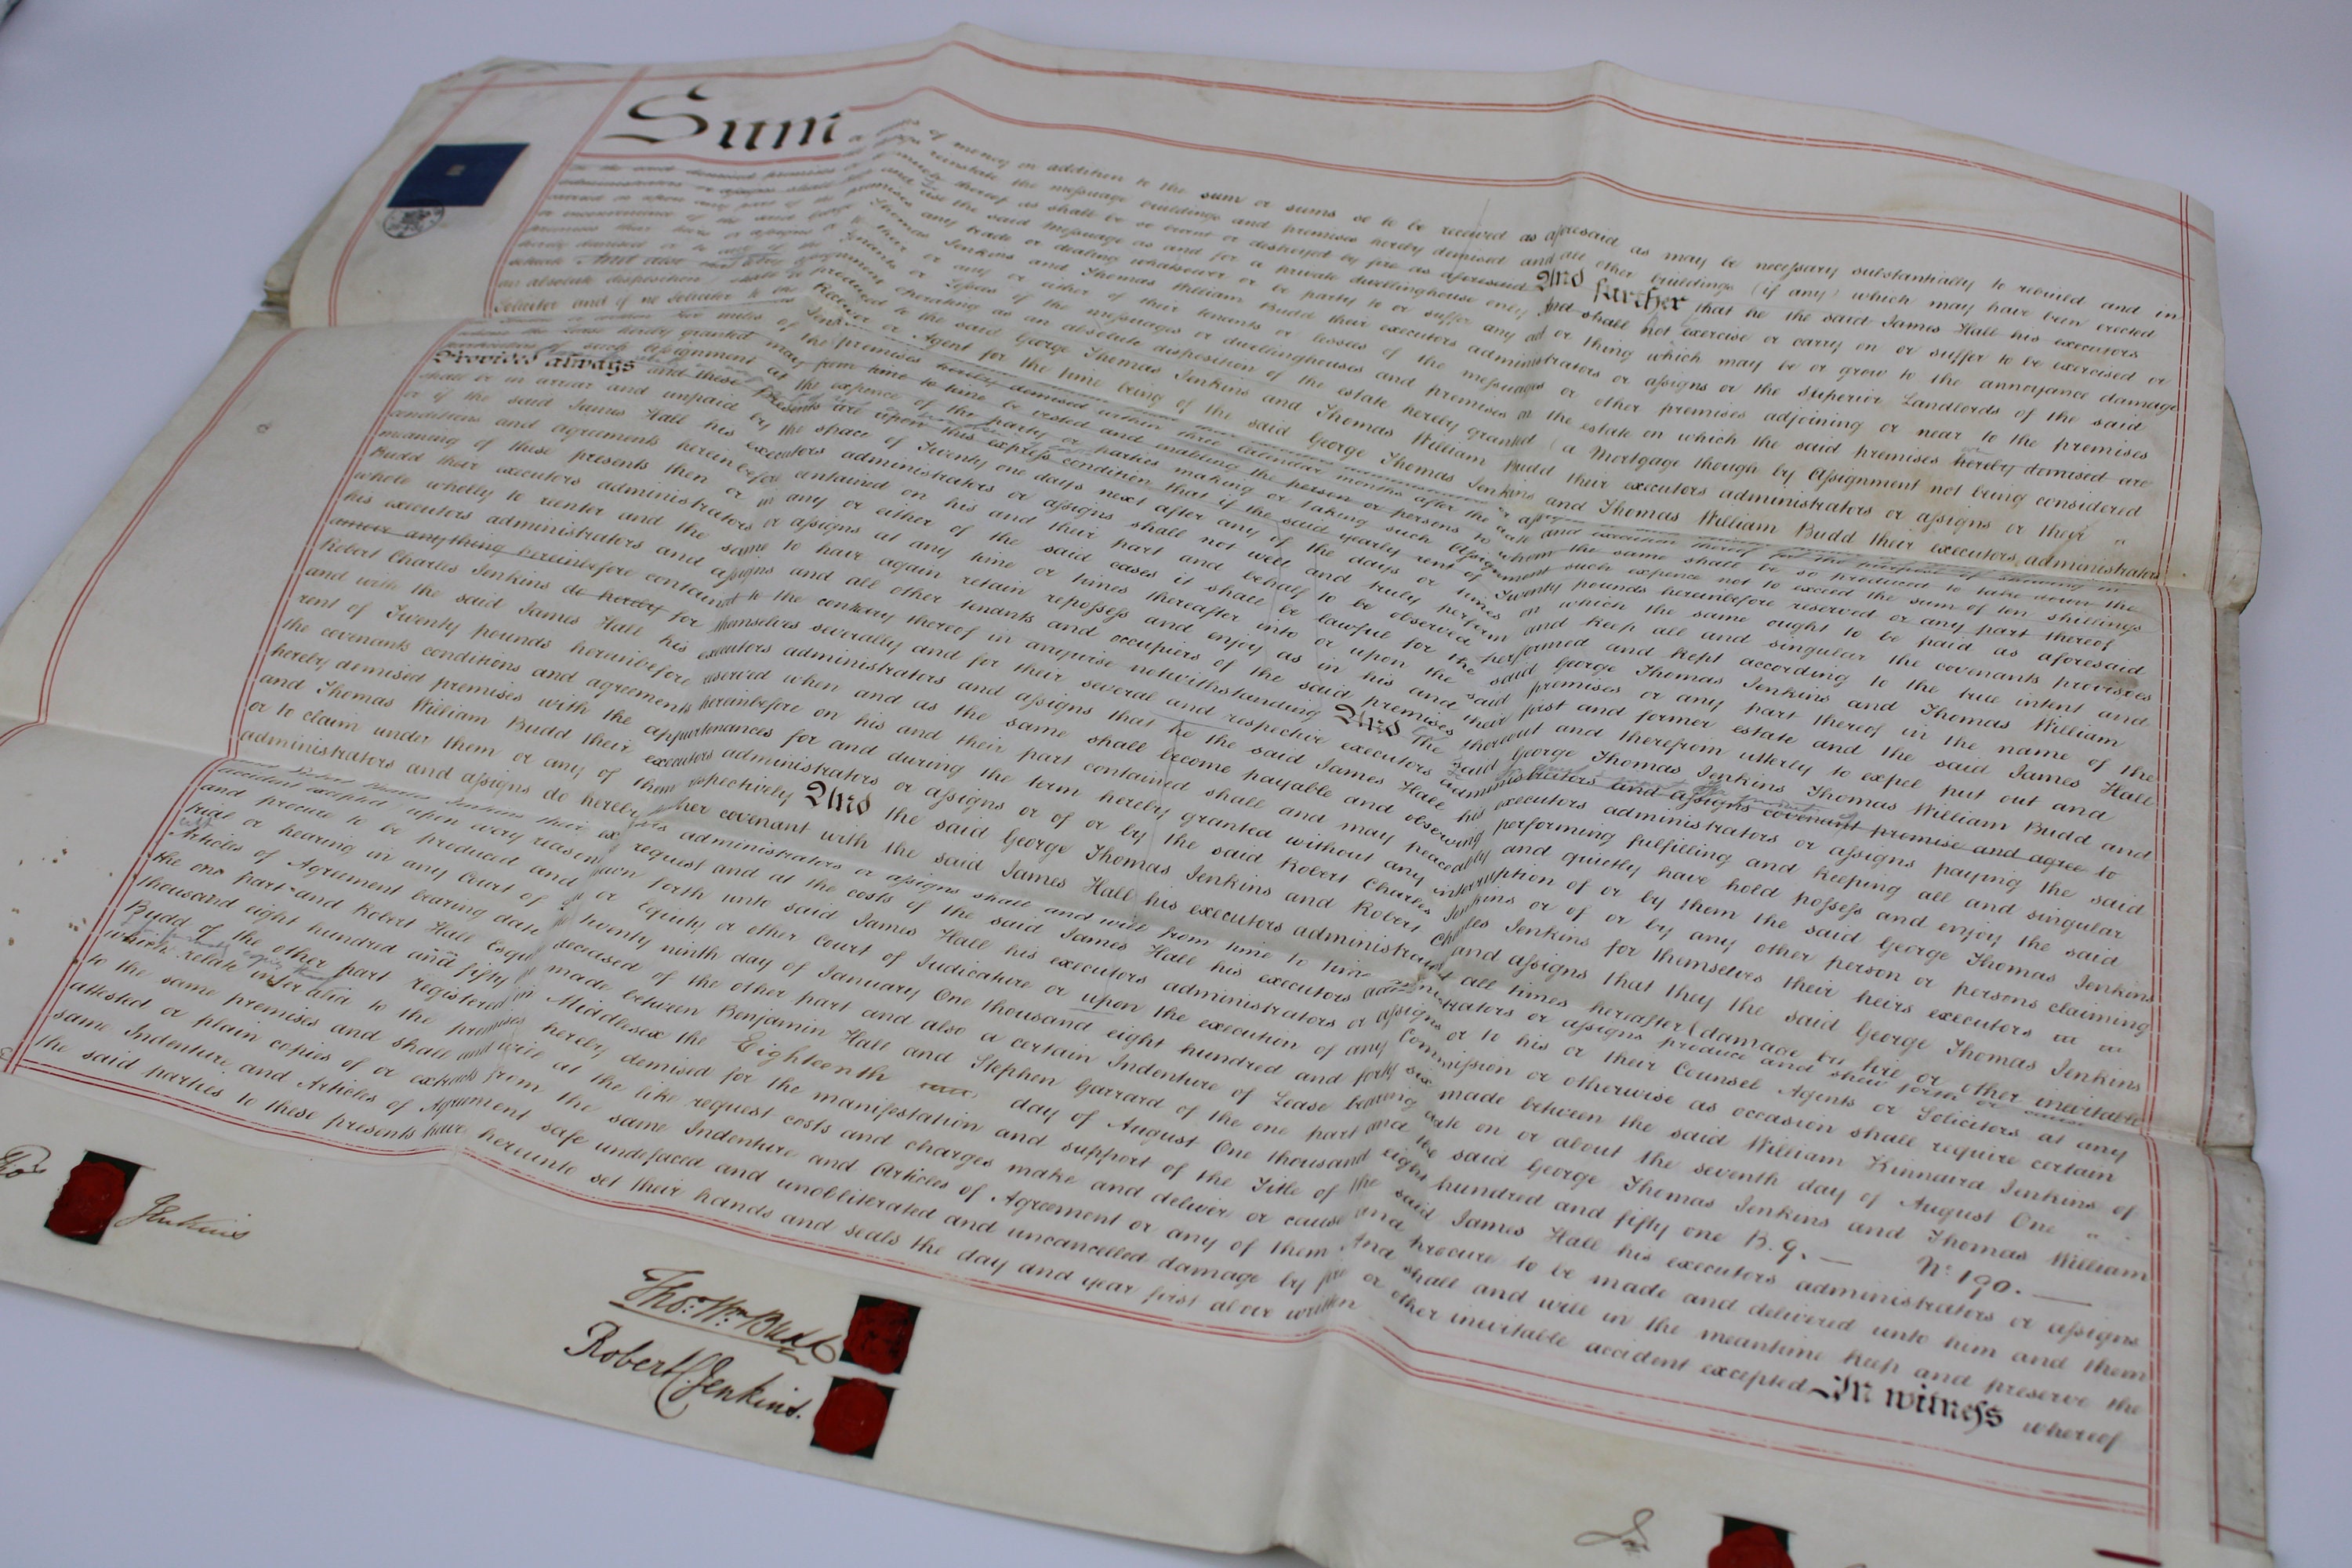 Sum of money in addition to the sum or sums so to be received as aforesaid as may be necessary substantially to rebuild and in
reinstate the messuage buildings and premises hereby demised and all other buildings (if any) which may have been erected
in the said demised premises or much thereof as shall be so burnt or destroyed by fire as aforesaid And further that he the said James Hall his executors
administrators or assigns shall and use the said messuage as and for a private dwellinghouse only And shall not exercise or carry on or suffer to be exercised or
carried on upon any part of the premises any trade or dealing whatsoever or be party to or suffer any act or thing which may be or grow to the annoyance damage
or inconvenience of the said George Thomas Jenkins and Thomas William Budd their executors administrators or assigns or the Superior Landlords of the said
premises their heirs or assigns or their or any or either of their tenants or lessees of the messuages or other premises adjoining or near to the premises
hereby demised or to any of the Tenants or Lessees of the messuages or dwellinghouses and premises on the estate on which the said premises hereby demised are
situate And also that every assignment operating as an absolute disposition of the estate hereby granted (a Mortgage though by Assignment not being considered
an absolute disposition) shall be produced to the said George Thomas Jenkins and Thomas William Budd their executors administrators or assigns or their
Solicitor and if no Solicitor to the Receiver or Agent for the time being of the said George Thomas Jenkins and Thomas William Budd their executors administrators
within five miles of the premises hereby demised within three calendar months after the date and execution thereof for the purpose of shewing in
whom the Lease hereby granted may from time to time be vested and enabling the person or persons to whom the same shall be so produced to take down the
particulars of such Assignment at the expence of the party or parties making or taking such Assignment such expence not to exceed the sum of ten shillings
Provided always and these Presents are upon this express condition that if the said yearly rent of Twenty pounds hereinbefore reserved or any part thereof
shall be in arrear and unpaid by the space of Twenty one days next after any of the days or times on which the same ought to be paid as aforesaid
or if the said James Hall his executors administrators or assigns shall not well and truly perform and keep all and singular the covenants provisoes
conditions and agreements hereinbefore contained on his and their part and behalf to be observed performed and kept according to the true intent and
meaning of these presents then or in any or either of the said cases it shall be lawful for the said George Thomas Jenkins and Thomas William
Budd their executors administrators or assigns at any time or times thereafter into or upon the said premises or any part thereof in the name of the
whole wholly to reenter and the same to have again retain repossess and enjoy as in his and their first and former estate and the said James Hall
his executors administrators and assigns and all other tenants and occupiers of the said premises thereout and therefrom utterly to expel put out and
amove anything hereinbefore contained to the contrary thereof in anywise notwithstanding And the said George Thomas Jenkins Thomas William Budd and
Robert Charles Jenkins do hereby for themselves severally and for their several and respective executors administrators and assigns covenant promise and agree to
and with the said James Hall his executors administrators and assigns that he the said James Hall his executors administrators or assigns paying the said
rent of Twenty pounds hereinbefore reserved when and as the same shall become payable and observing performing fulfilling and keeping all and singular
the covenants conditions and agreements hereinbefore on his and their part contained shall and may peaceably and quietly have hold possess and enjoy the said
hereby demised premises with the appurtenances for and during the term hereby granted without any interruption of or by them the said George Thomas Jenkins
and Thomas William Budd their executors administrators or assigns or of or by the said Robert Charles Jenkins or of or by any other person or persons claiming
or to claim under them or any of them respectively And the said George Thomas Jenkins and Robert Charles Jenkins for themselves their heirs executors
administrators and assigns do hereby further covenant with the said James Hall his executors administrators and assigns that they the said George Thomas Jenkins
and Robert Charles Jenkins their executors administrators or assigns shall and will from time to time and at all times hereafter (damage by fire or other inevitable
accident excepted) upon every reasonable request and at the costs of the said James Hall his executors administrators or assigns produce and shew forth or cause
and procure to be produced and shewn forth unto said James Hall his executors administrators or assigns or to his or their Counsel Agents or Solicitors at any
trial or hearing in any Court of Law or Equity or other Court of Judicature or upon the execution of any Commission or otherwise as occasion shall require certain
Articles of Agreement bearing date the twenty ninth day of January One thousand eight hundred and forty six made between the said William Kinnaird Jenkins of
the one part and Robert Hall Esqre deceased of the other part and also a certain Indenture of Lease bearing date on or about the seventh day of August One
thousand eight hundred and fifty made between Benjamin Hall and Stephen Garrard of the one part and the said George Thomas Jenkins and Thomas William
Budd of the other part registered in Middlesex the Eighteenth day of August One thousand eight hundred and fifty one B. 9. No. 190.
which relate inter alia to the premises hereby demised for the manifestation and support of the Title of the said James Hall his executors administrators or assigns
to the same premises and shall and will at the like request costs and charges make and deliver or cause and procure to be made and delivered unto him and them
attested or plain copies of or extracts from the same Indenture and Articles of Agreement or any of them And shall and will in the meantime keep and preserve the
same Indenture and Articles of Agreement safe undefaced and unobliterated and uncancelled damage by fire or other inevitable accident excepted In witness whereof
the said parties to these presents have hereunto set their hands and seals the day and year first above written
Jenkins
Thos. Wm. Budd
Robert C. Jenkins.